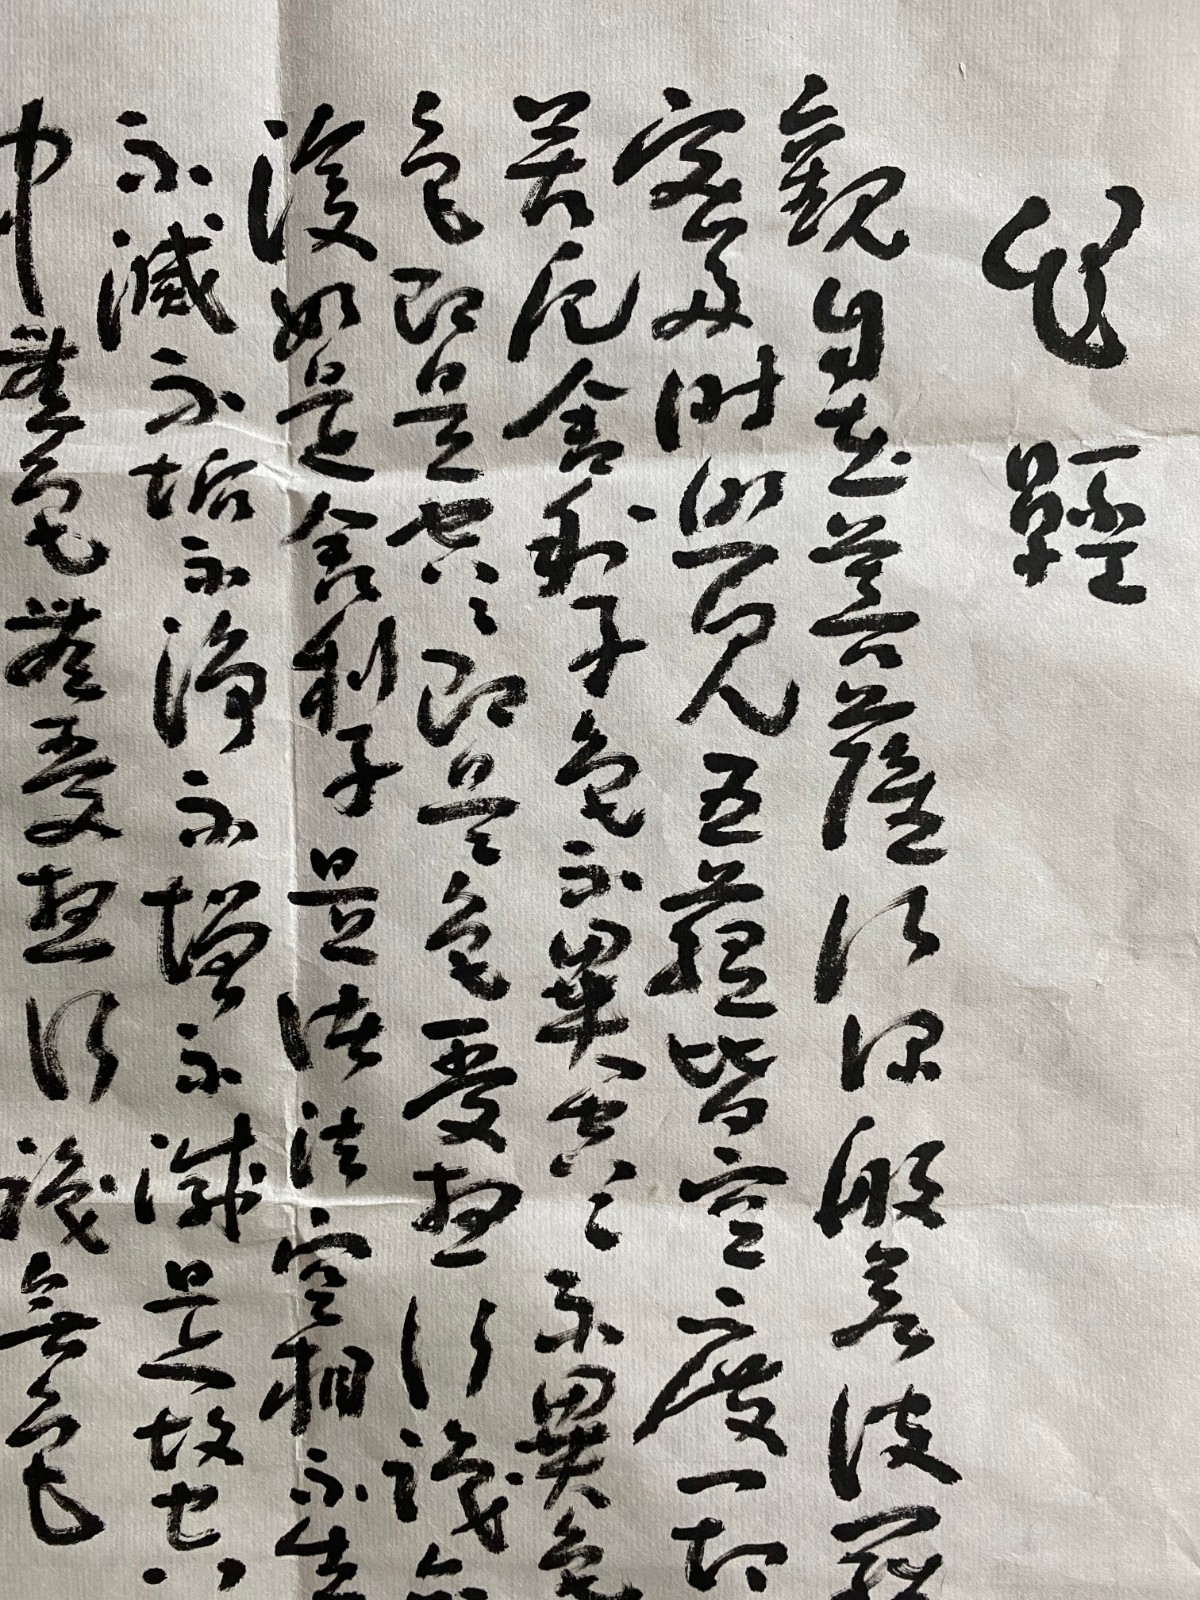 心經
觀自在菩薩行深般若波羅
密多時照見五蘊皆空度一切
苦厄舍利子色不異空〻不異色
色即是空〻即是色受想行識亦
復如是舍利子是諸法空相不生
不滅不垢不淨不增不減是故空
中無色無受想行識無色